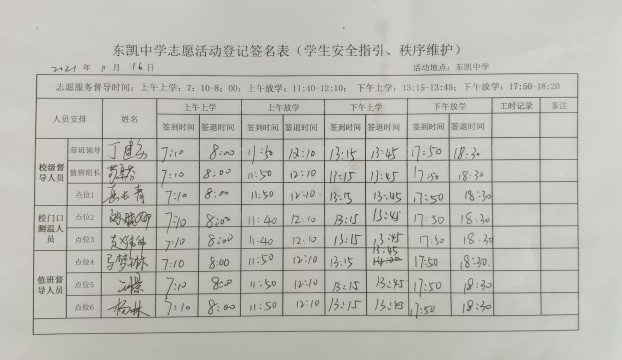 东凯中学志愿活动登记签名表（学生安全指引、秩序维护）
2021 年 11 月 16 日 活动地点：东凯中学
志愿服务督导时间：上午上学：7：10-8：00；上午放学：11:40-12:10；下午上学：13:15-13:45；下午放学：17:50-18:20
人员安排 姓名 上午上学 上午放学 下午上学 下午放学 工时记录 备注
签到时间 签退时间 签到时间 签退时间 签到时间 签退时间 签到时间 签退时间
校级督导人员 值班领导 7:10 8:00 11:50 12:10 13:15 13:45 17:50 18:30
值班组长 7:10 8:00 11:50 12:10 13:15 13:45 17:50 18:30
点位1 7:10 8:00 11:50 12:10 13:15 13:45 17:50 18:30
校门口测温人员 点位2 7:10 8:00 11:40 12:10 13:15 13:45 17:50 18:30
点位3 7:10 8:00 11:40 12:10 13:15 13:45 17:50 18:30
值班督导人员 点位4 7:10 8:00 11:50 12:10 13:15 13:45 17:50 18:30
点位5 7:10 8:00 11:50 12:10 13:15 13:45 17:50 18:30
点位6 杨林 7:10 8:00 11:50 12:10 13:15 13:45 17:50 18:30